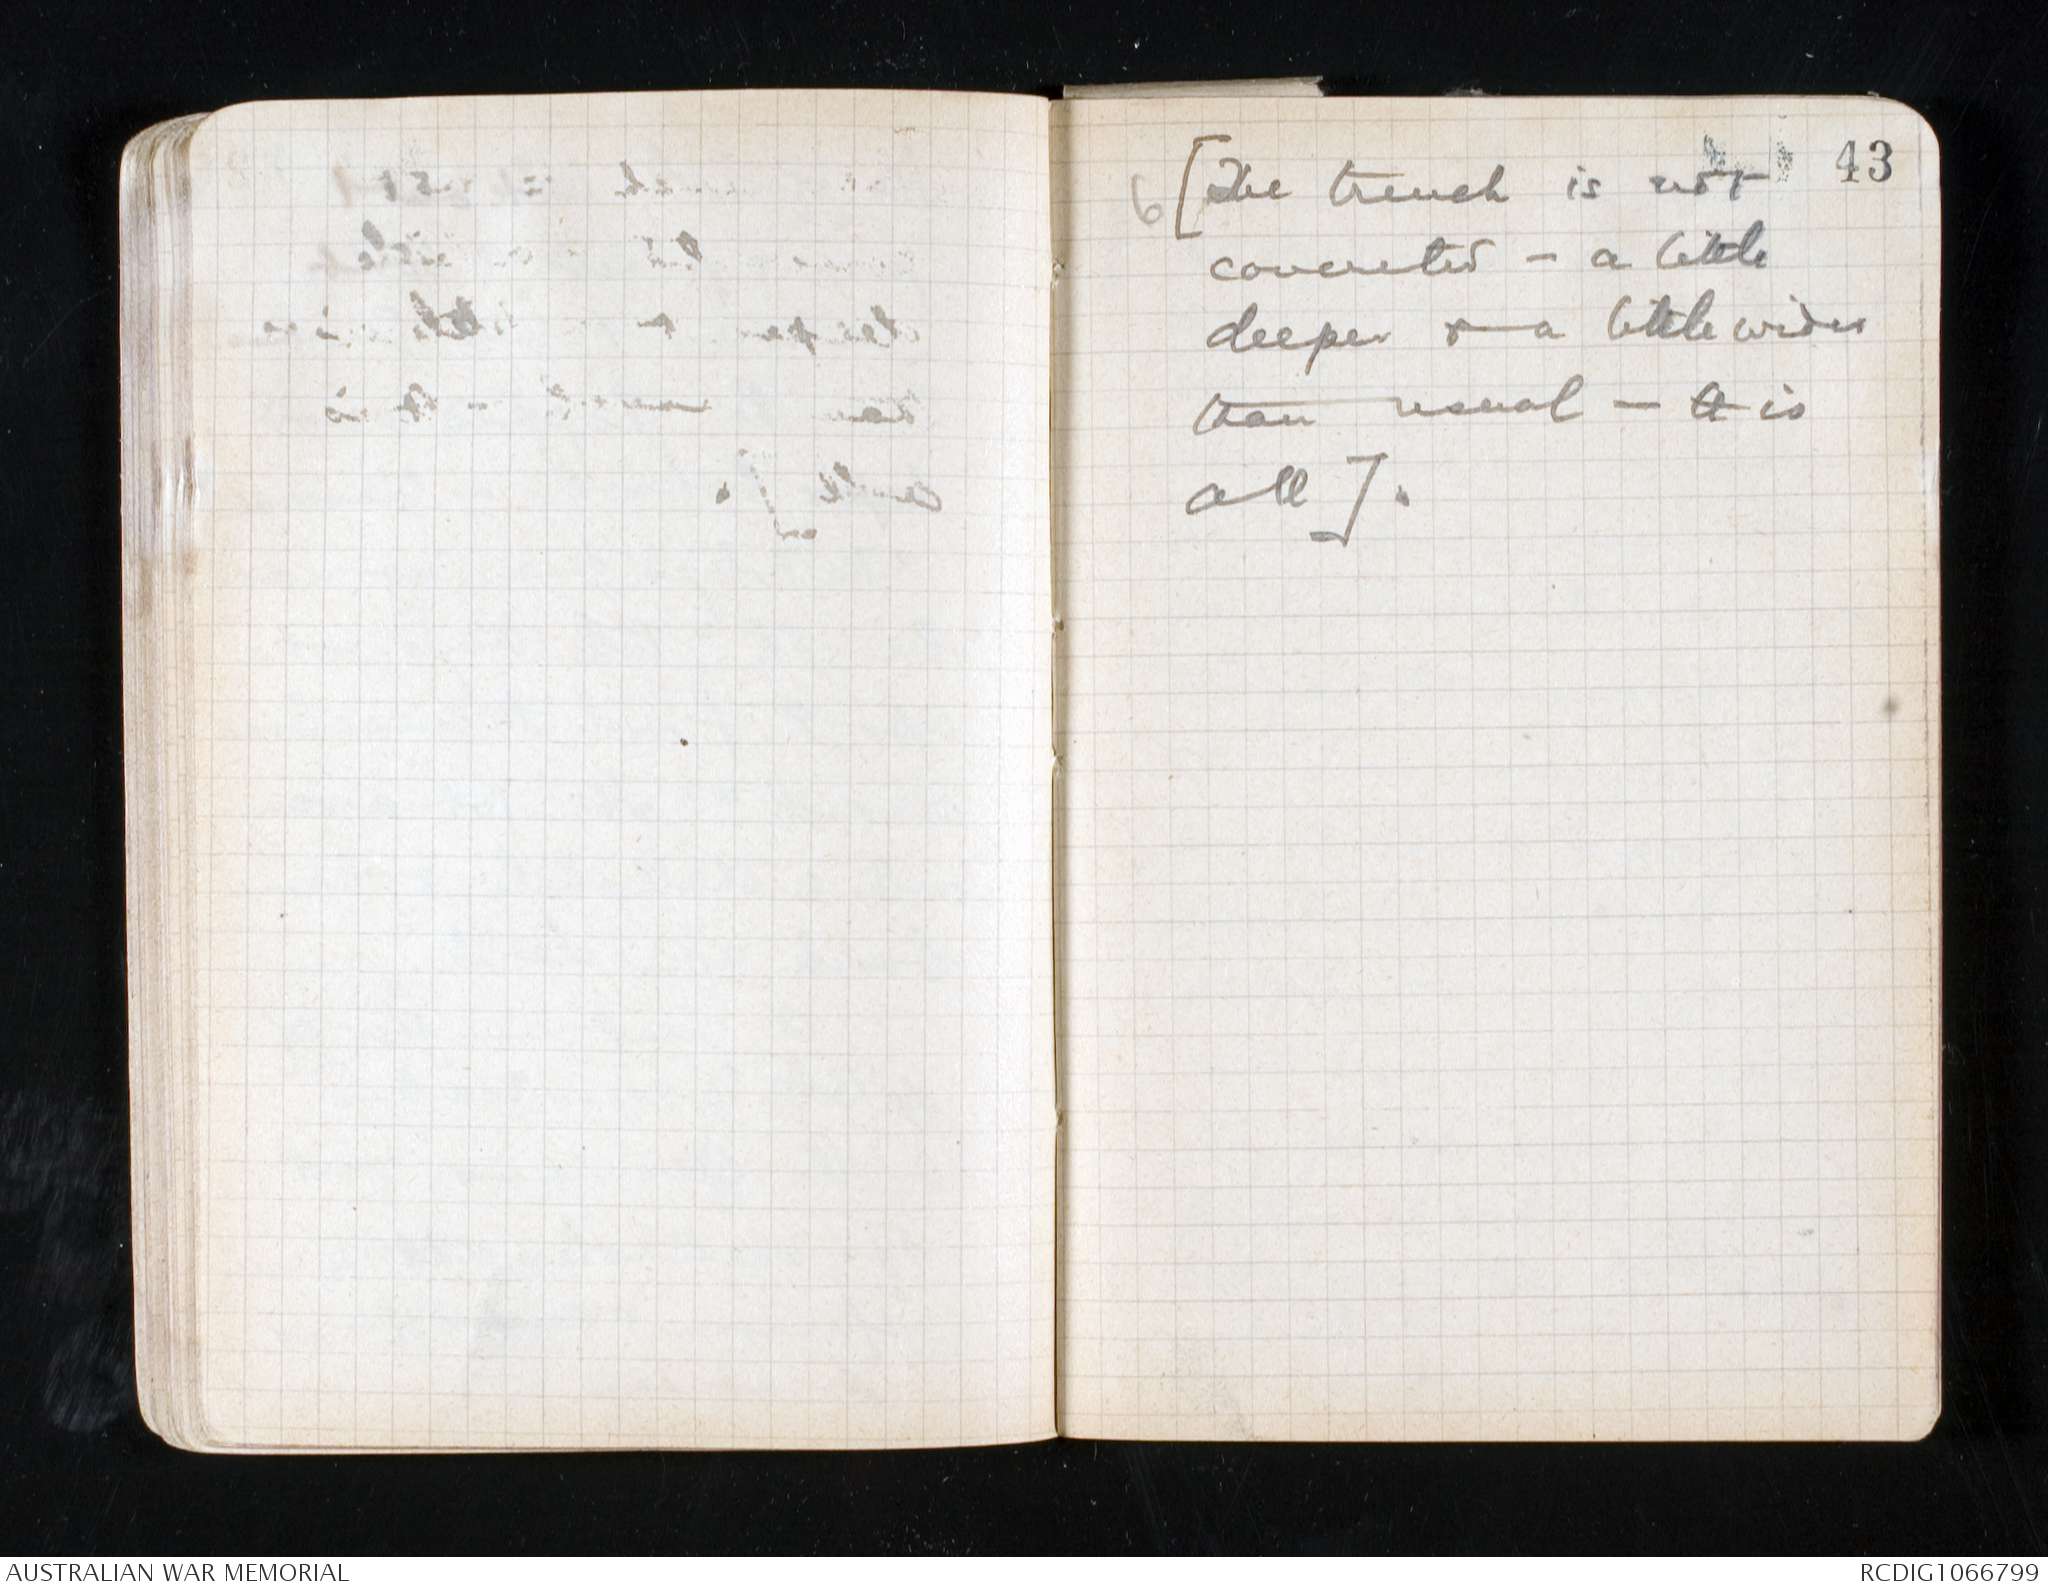 43
6 [The trench is not
concreted – a little
deeper & a little wider
than usual – tt is
all].
AUSTRALIAN WAR MEMORIAL
RCDIG1066799